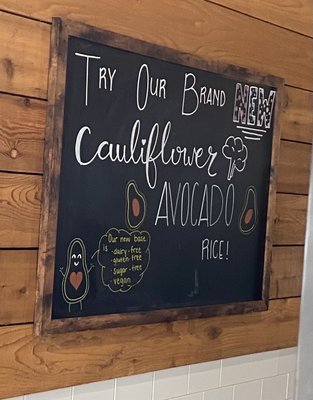 Try Our Brand NEW
Cauliflower
AVOCADO
RICE!
Our New base
is
- dairy-free
- gluten-free
- sugar-free
vegan